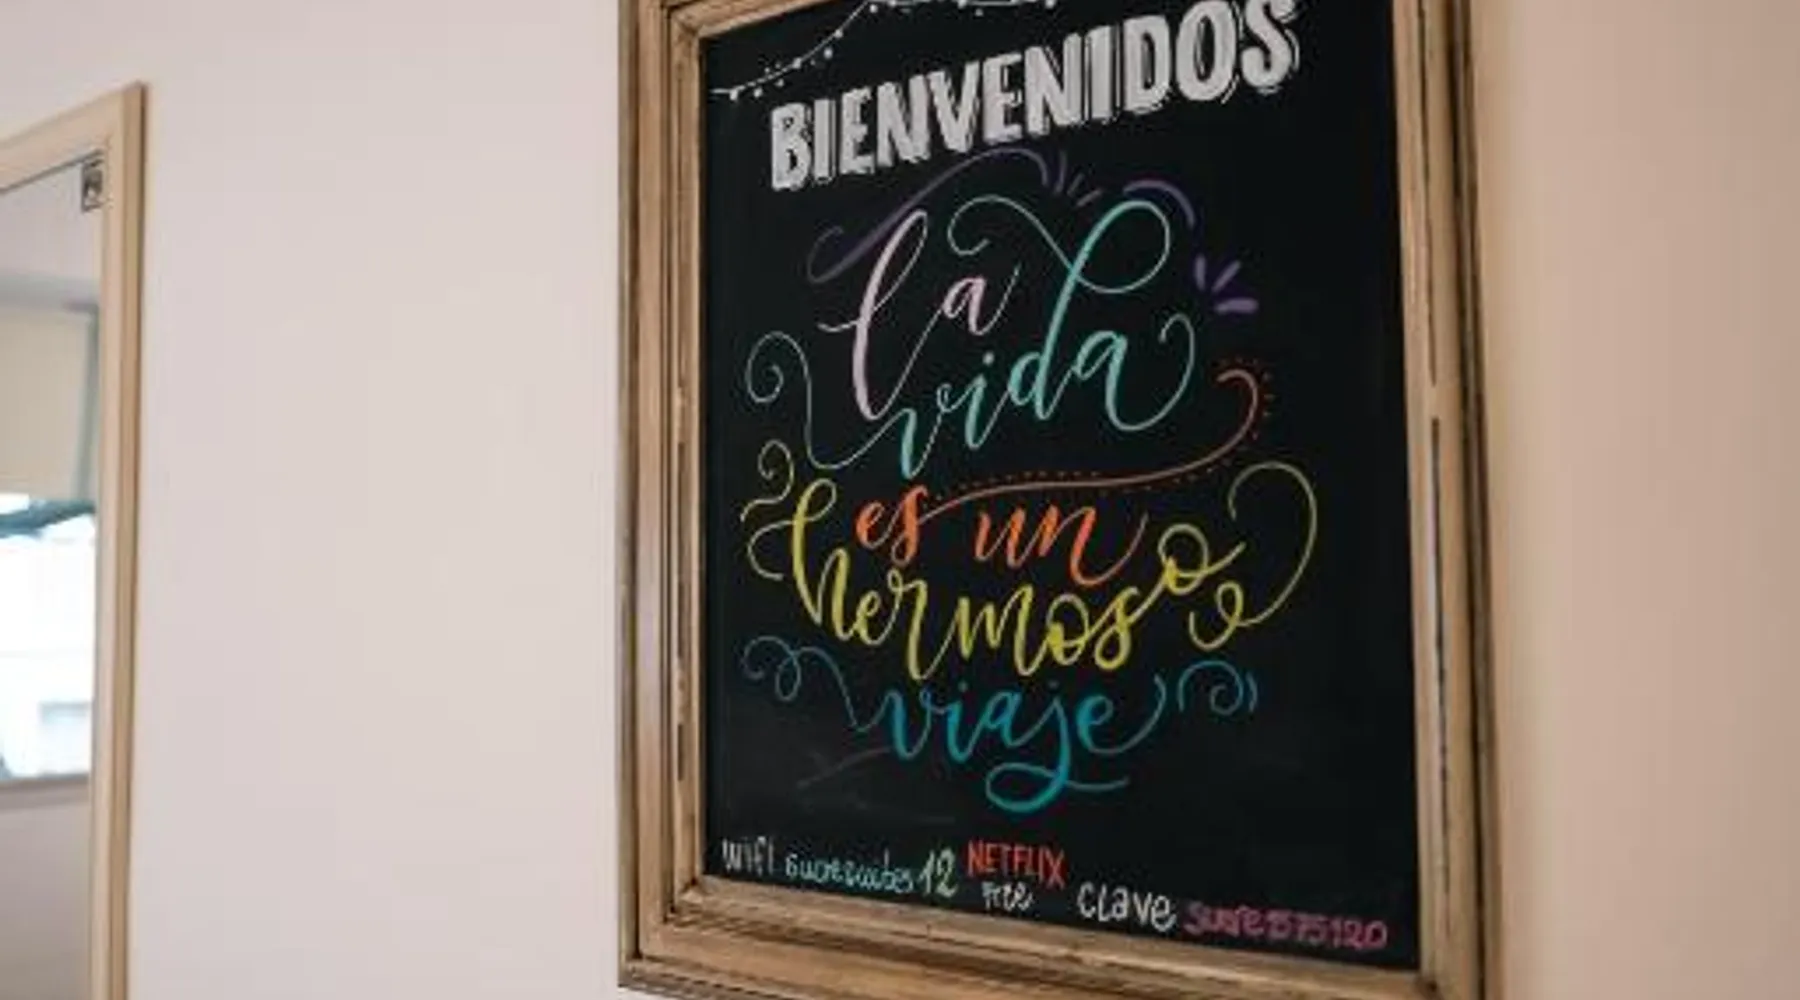 BIENVENIDOS
la
vida
es un
hermoso
viaje
wifi 12 NETFLIX
Free
CLAVE